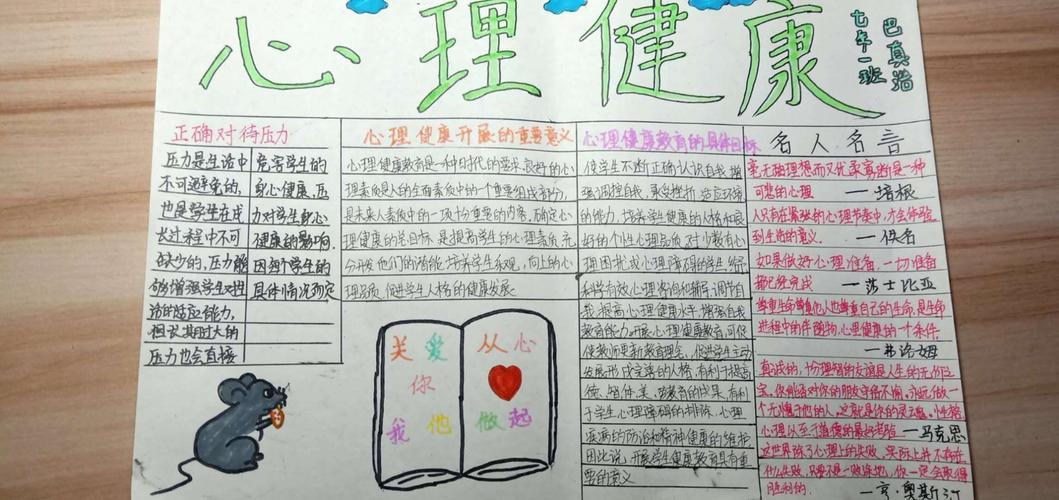 心理健康
七年一班
巴真治
正确对待压力
压力是生活中
不可避免的,
也是学生在成
长过程中不可
缺少的,压力能
够增强学生对生
活的适应能力,
但长期过大的
压力也会直接
危害学生的
身心健康,压
力对学生身心
健康的影响,
因每个学生的
具体情况而定
心理健康开展的重要意义
心理健康教育是一种时代的要求,良好的心
理素质是人的全面素质中的一个重要组成部分,
是未来人素质中的一项十分重要的内容,而确定心
理健康的总目标是提高学生的心理素质,充
分开发他们的潜能,培养学生乐观、向上的心
理品质,促进学生人格的健康发展
关爱
你
我他
从心
做起
心理健康教育的具体目标
使学生不断正确认识自我,增
强调控自我、承受挫折、适应环境
的能力,培养学生健康的人格和良
好的个性心理品质,对少数有心
理困扰或心理障碍的学生,给予
科学有效心理咨询和辅导,调节自
我,提高心理健康水平,增强自我
教育能力,开展心理健康教育,可促
使教师更新教育理念,促进学生主动
发展形成完善的人格,有利于提高
德、智、体、美、劳教育的成果,有利
于学生心理障碍的排除,心理
疾病的防治和精神健康的维护
因此说,开展学生健康教育具有重
要的意义
名人名言
毫无理想而又优柔寡断是一种
可悲的心理 —培根
人只有在紧张的心理节奏中,才会体验
到生活的意义. —佚名
如果做好心理准备,一切准备
都已经完成 —莎士比亚
尊重生命尊重他人也尊重自己的生命,是生命
进程中的伴随物,心理健康的一个条件
—弗洛姆
真诚的,十分理智的友谊是人生的无价之
宝,你能否对你的朋友守信不渝,永远做一
个无愧于他的人,这就是你的灵魂、性格
心理以至于道德的最好考验 —马克思
这世界除了心理上的失败,实际上并不存在
什么失败,只要不是一败涂地,你一定会取得
胜利的. —亨·奥斯汀